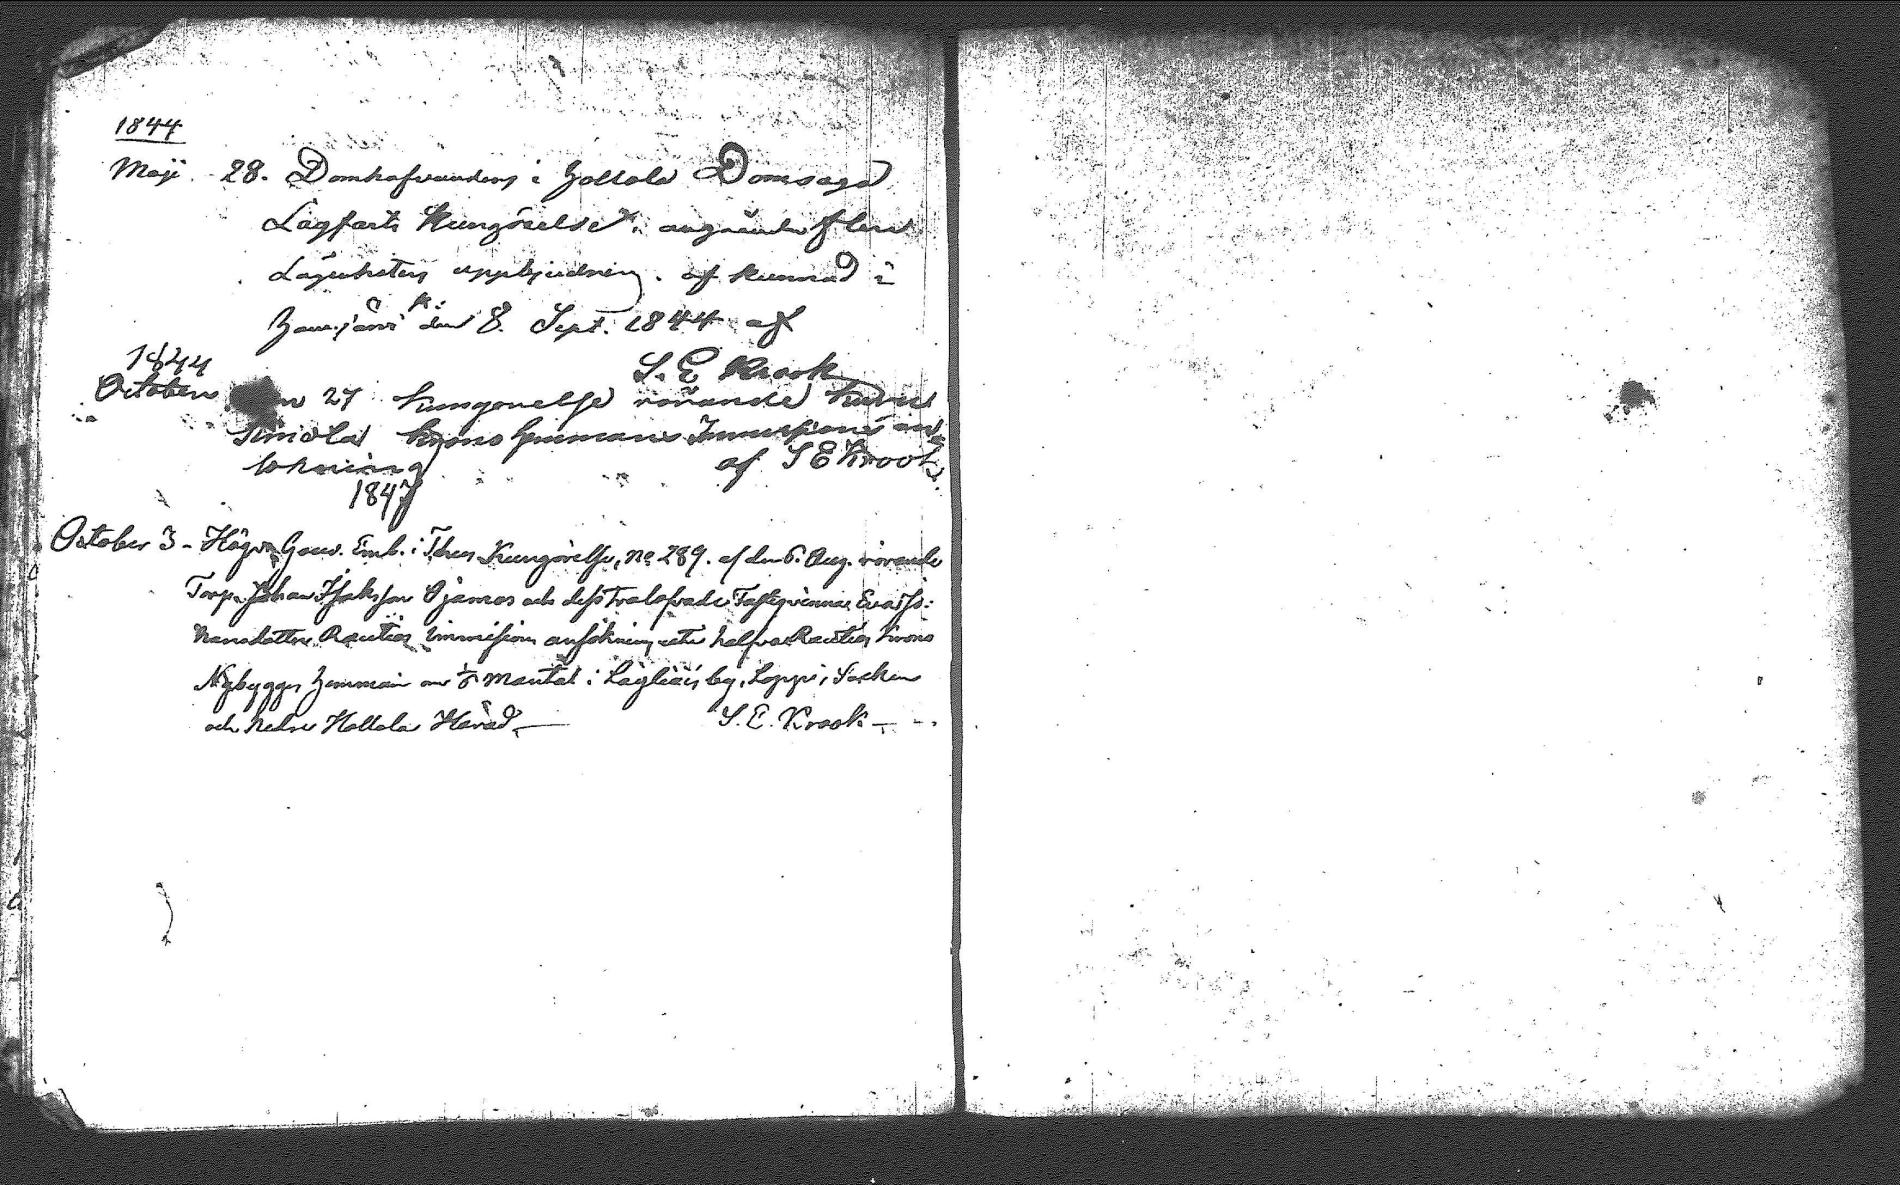 1844
Maji 28. Domhafvandens i Hollola Domsaga
Lagfarts Kungörelse angående flere
Lägenheters uppbjudning. afkunnad i
den 8. Sept. 1844 af
S. E Krook
1844
October 27 Kungörelse rörande
Simola Krono Hemmans Immissions an
sökning af S E Krook
1847
October 3 - Högv. Gouv. Emb. i Thus Kungörelse, No 289. af den 6. Aug. rörande
Torp. Johan Isaksson Ojamos och dess Trolofvade Eva Jo:
hansdotter Rautios immission ansökning uti halfva Rautios Krono
Nybygges Hemman om 1/8 mantal i Läyliäis by, Loppis Socken
och Nedre Hollola Härad — S. E. Krook —